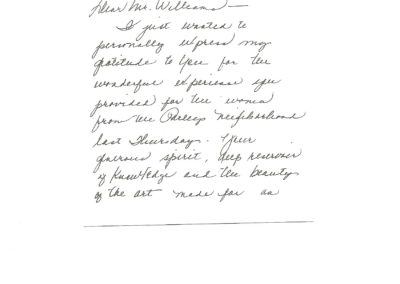 Dear Mr. Williams—
I just wanted to
personally express my
gratitude to you for the
wonderful experience you
provided for the women
from the neighborhood
last Thursday. Your
generous spirit, deep reservoir
of knowledge and the beauty
of the art made for an